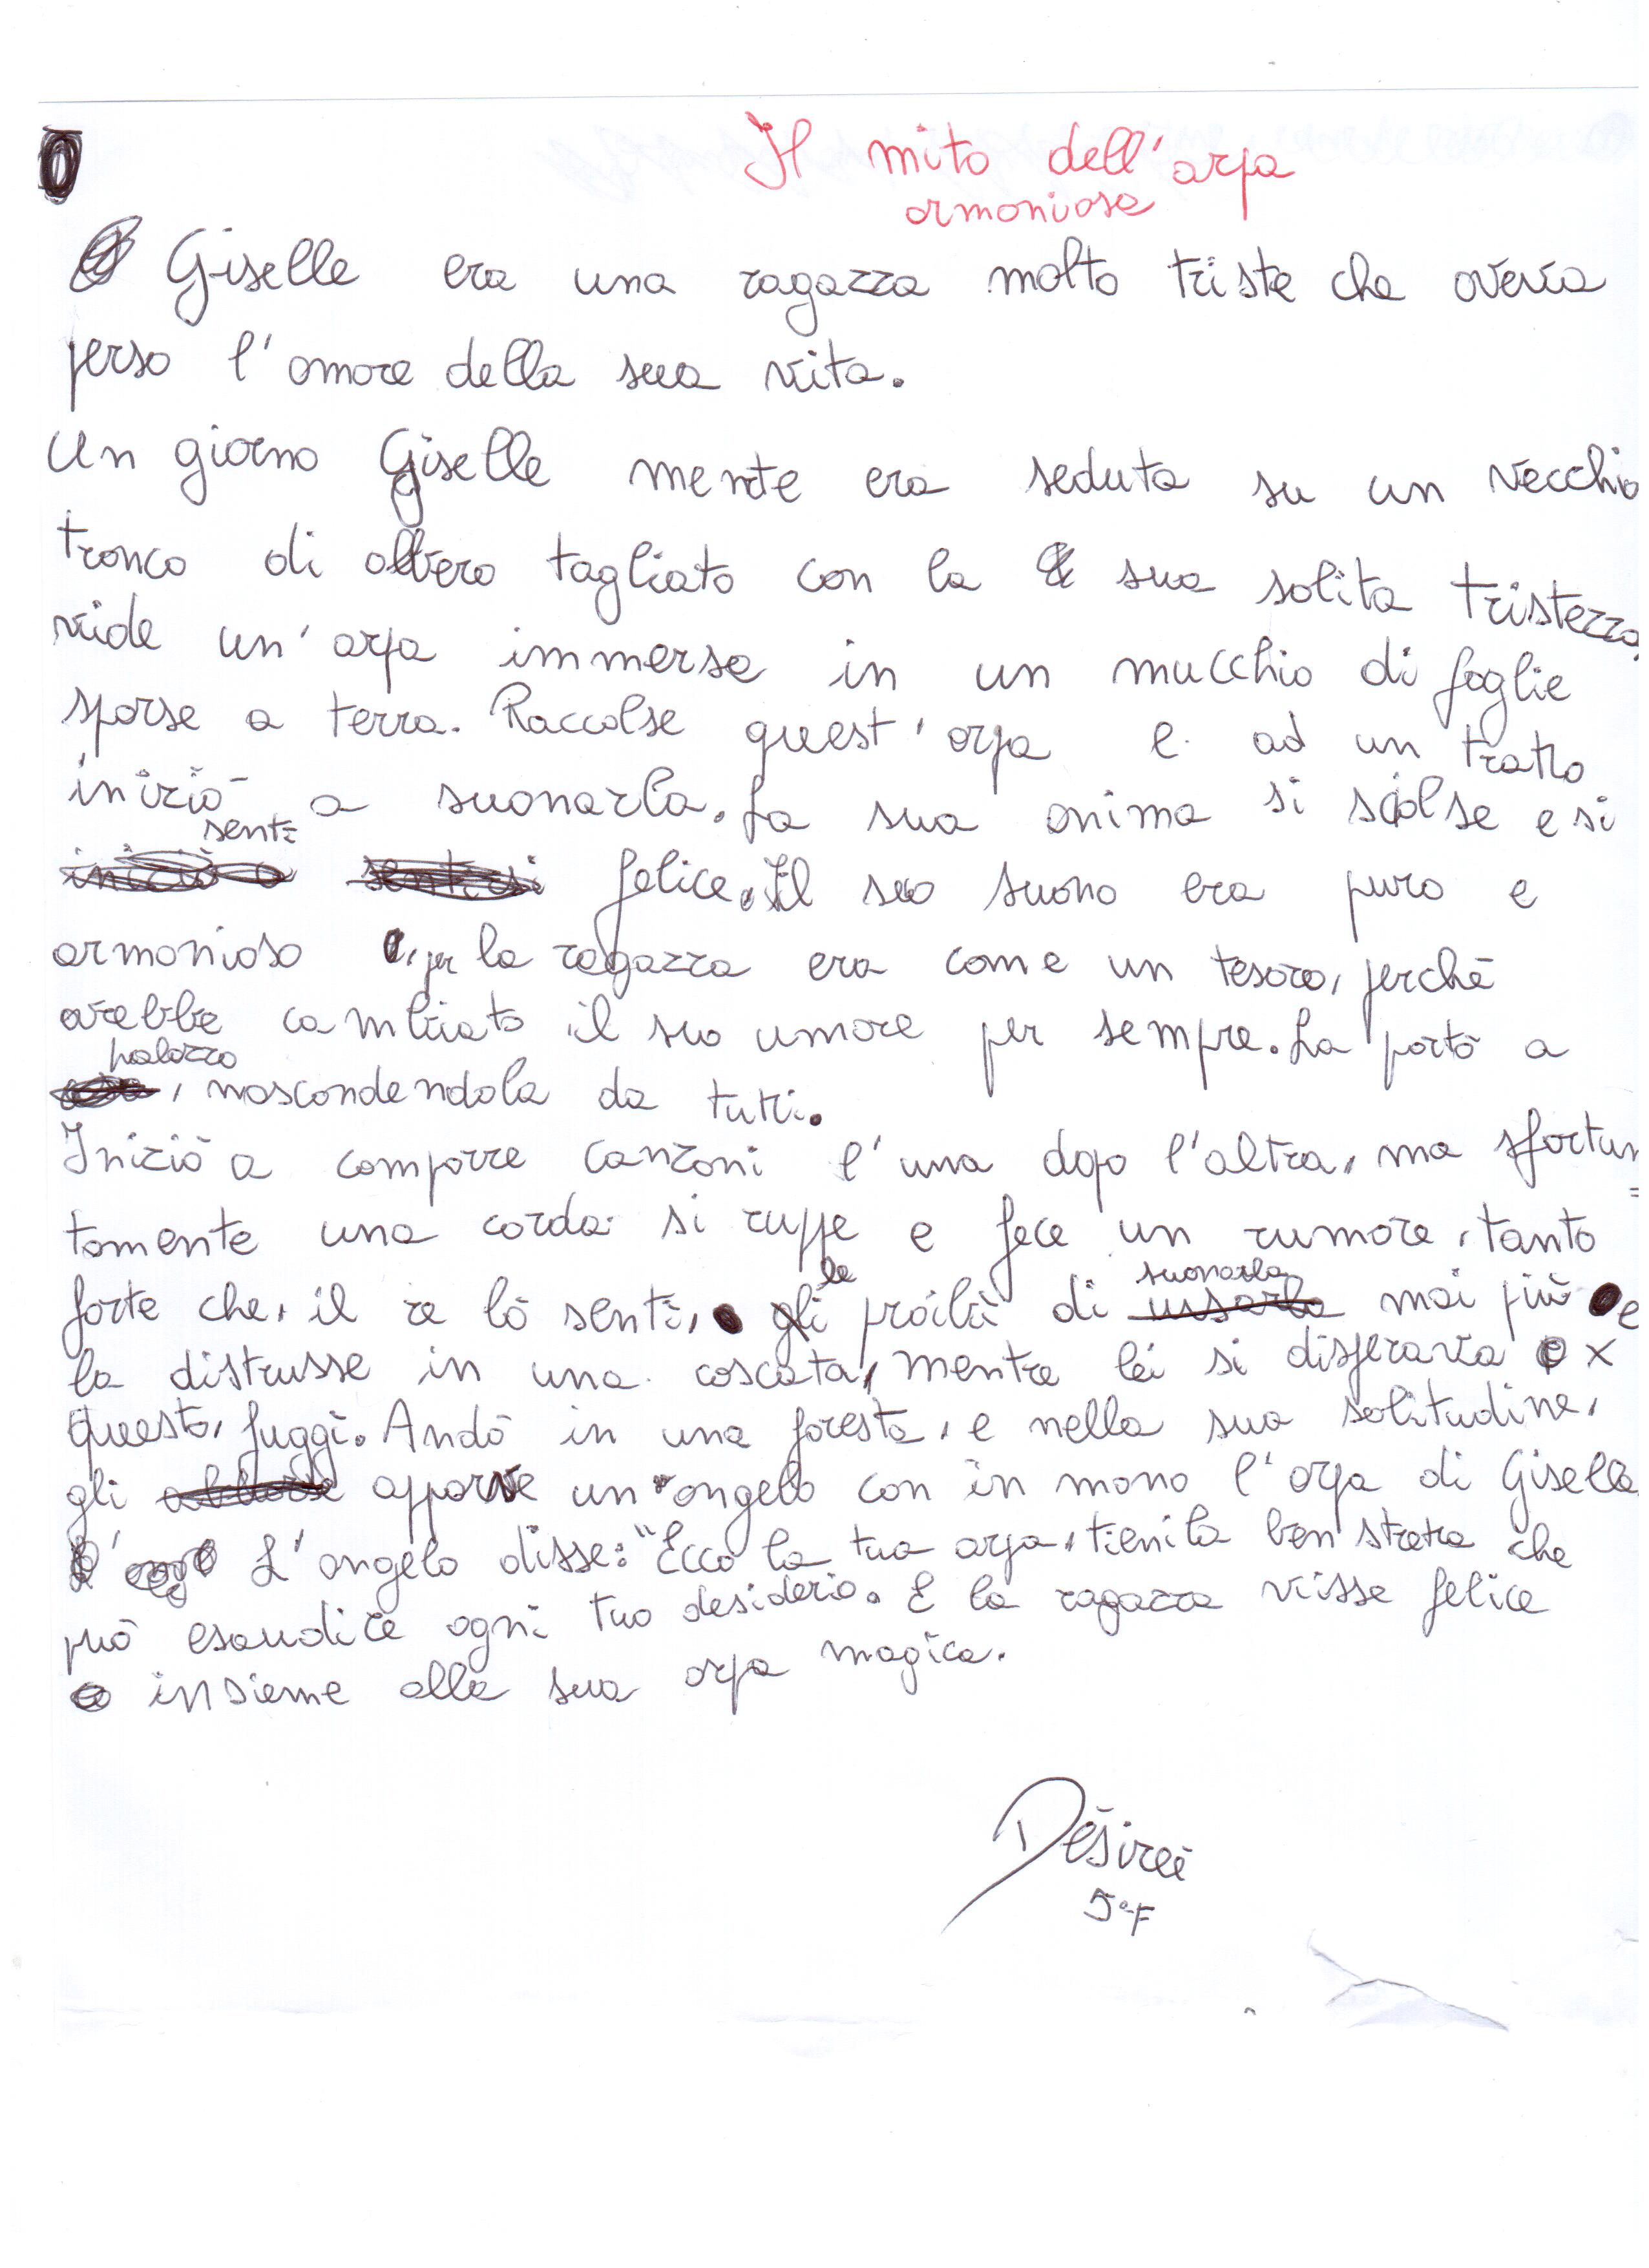 Il mito dell'arpa
armoniosa
Giselle era una ragazza molto triste che aveva
perso l'amore della sua vita.
Un giorno Giselle mentre era seduta su un vecchio
tronco di albero tagliato con la sua solita tristezza,
vide un'arpa immersa in un mucchio di foglie
sparse a terra. Raccolse quest'arpa e ad un tratto
iniziò a suonarla. La sua anima si sciolse e si
sentì felice. Il suo suono era puro e
armonioso e, per la ragazza era come un tesoro, perchè
avrebbe cambiato il suo umore per sempre. La portò a
palazzo, nascondendola da tutti.
Iniziò a comporre canzoni l'una dopo l'altra, ma sfortuna=
tamente una corda si ruppe e fece un rumore, tanto
forte che, il re lo sentì, le proibì di suonarla mai più e
la distrusse in una cascata, mentre lei si disperava x
questo, fuggì. Andò in una foresta, e nella sua solitudine,
gli apparve un angelo con in mano l'arpa di Giselle.
L'angelo disse: "Ecco la tua arpa, tienila ben stretta che
può esaudire ogni tuo desiderio. E la ragazza visse felice
insieme alla sua arpa magica.
Désireé
5°F